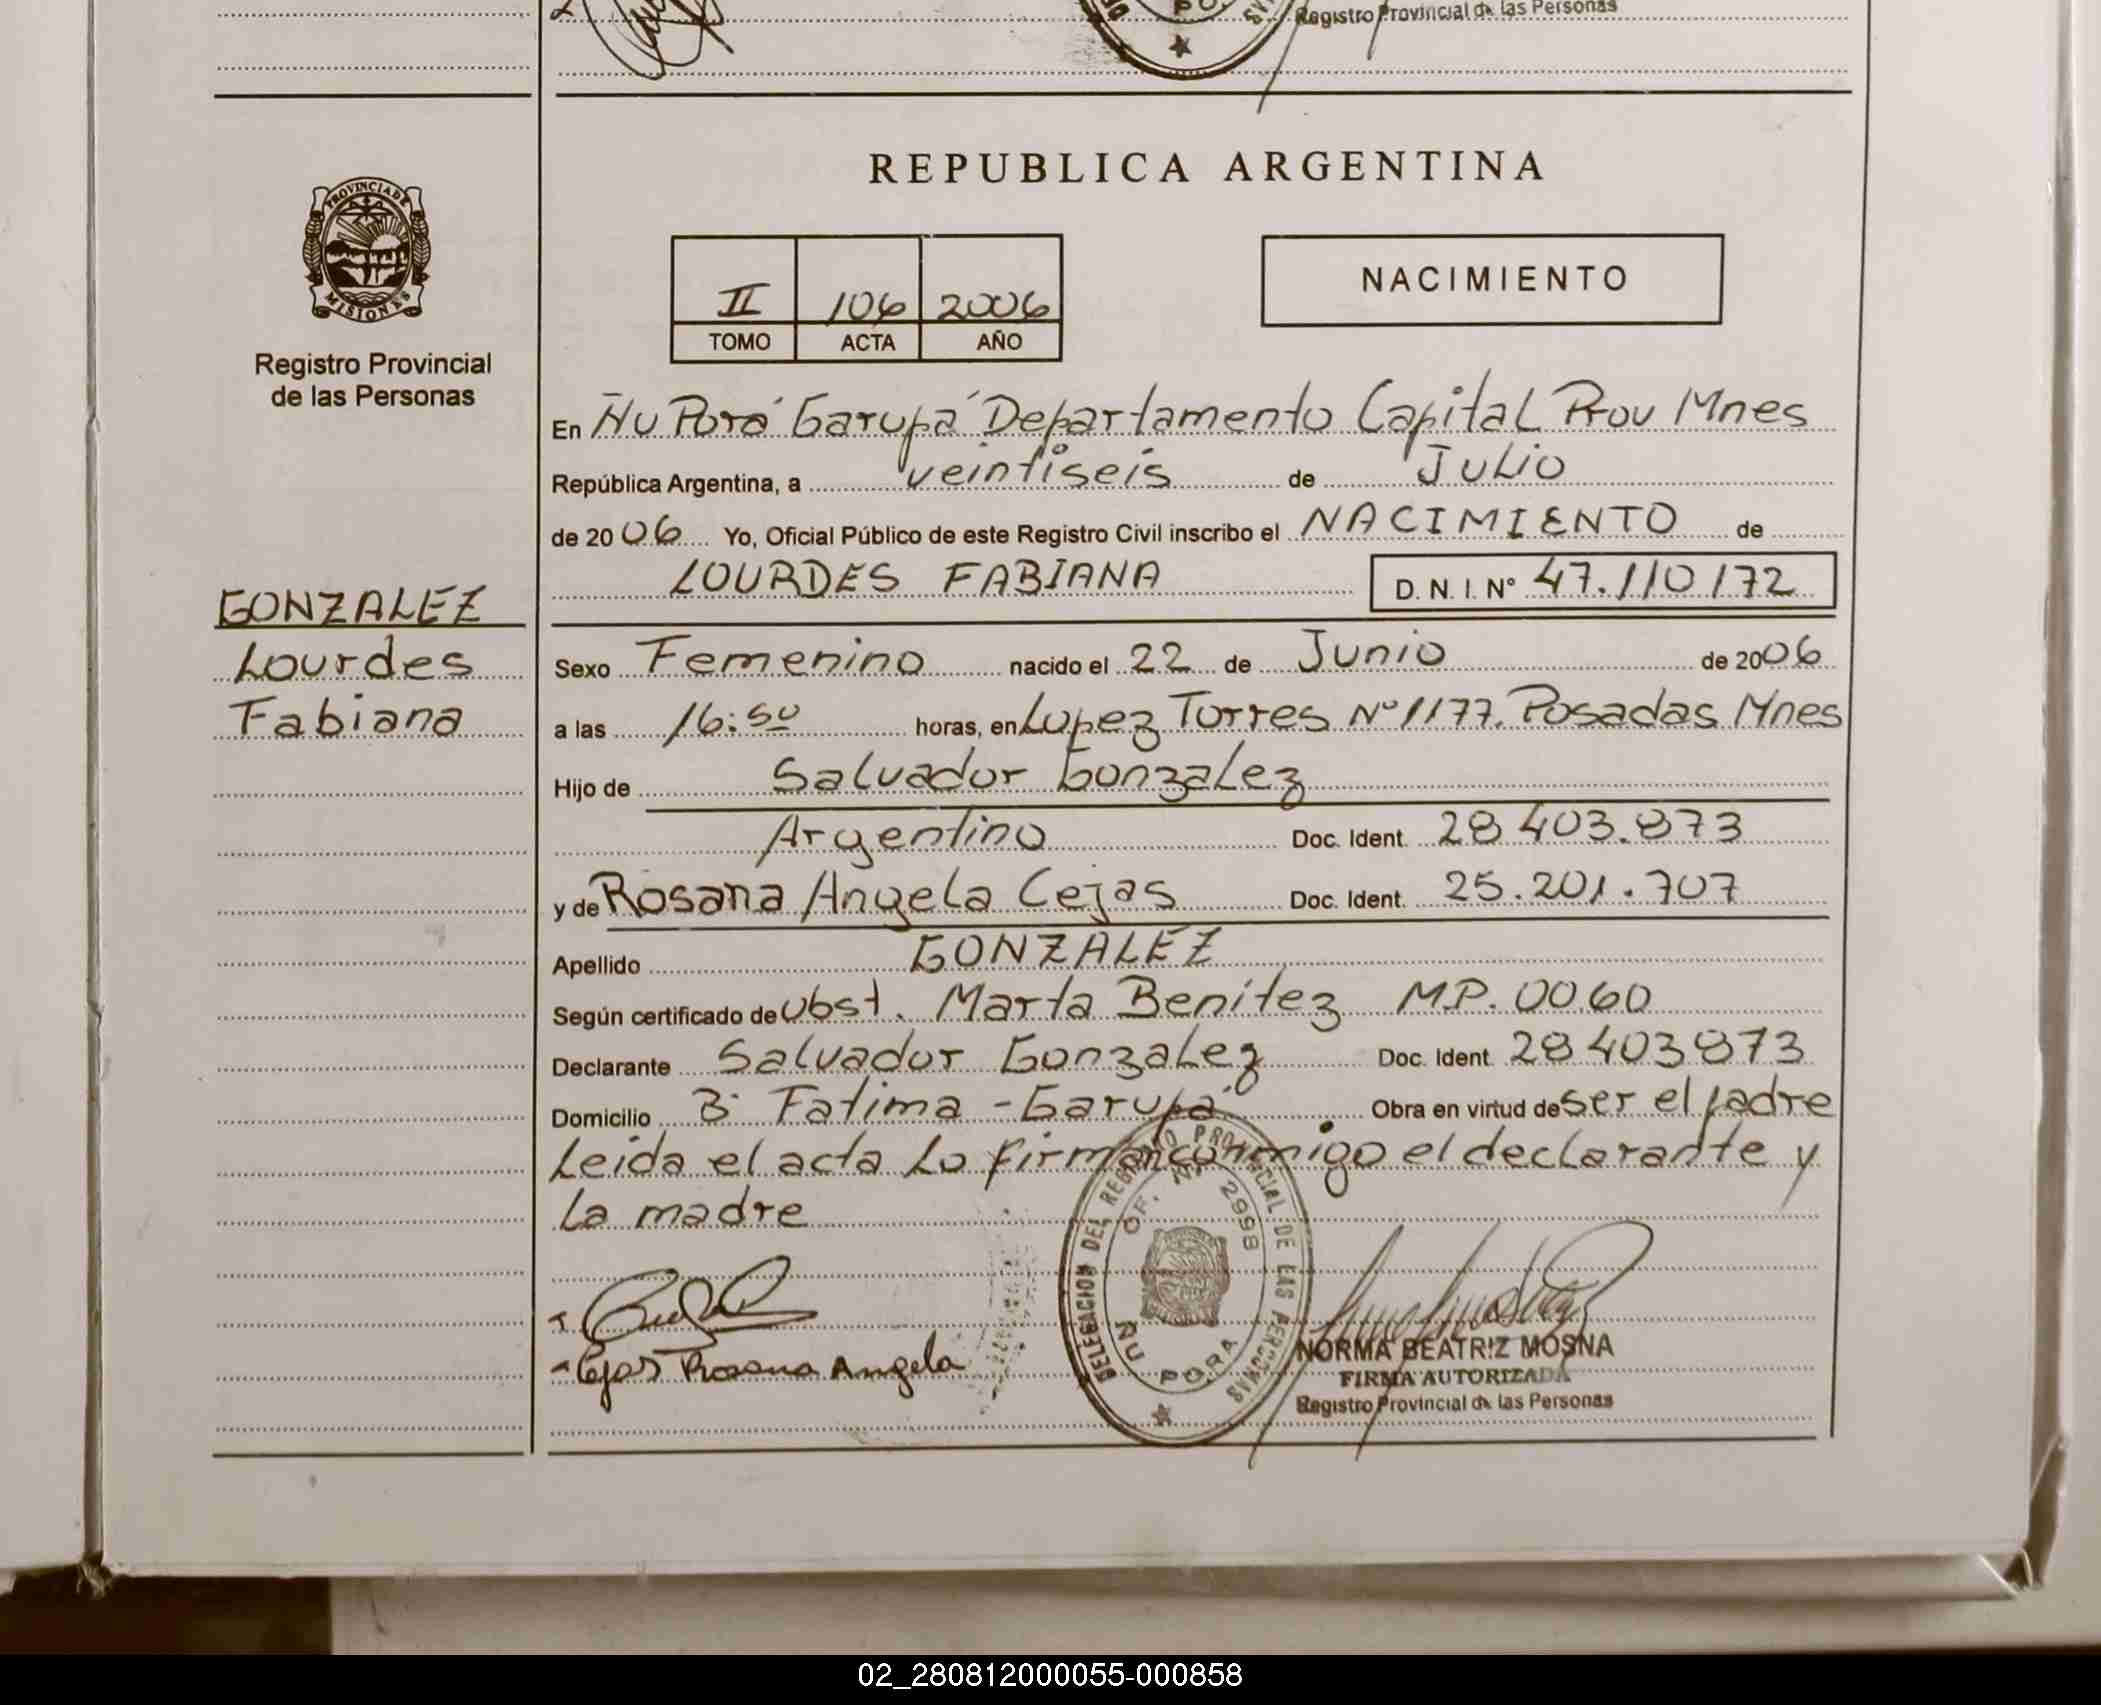 Registro Provincial de las Personas
PROVINCIA DE
MISIONES
Registro Provincial
de las Personas
GONZALEZ
Lourdes
Fabiana
REPUBLICA ARGENTINA
II 106 2006
TOMO ACTA AÑO
NACIMIENTO
En Ñu Porá Garupá Departamento Capital Prov Mnes
República Argentina, a veintiseis de Julio
de 2006 Yo, Oficial Público de este Registro Civil inscribo el NACIMIENTO de
LOURDES FABIANA D. N. I. Nº 47.110172
Sexo Femenino nacido el 22 de Junio de 2006
a las 16:50 horas, en Lopez Torres Nº 1177. Posadas Mnes
Hijo de Salvador Gonzalez
Argentino Doc. Ident. 28403.873
y de Rosana Angela Cejas Doc. Ident. 25.201.707
Apellido GONZALEZ
Según certificado de Obst. Marta Benitez M.P. 0060
Declarante Salvador Gonzalez Doc. Ident. 28403873
Domicilio Bº Fatima - Garupá Obra en virtud de ser el padre
Leida el acta Lo firman conmigo el declarante y
La madre
Cejas Rosana Angela
DELEGACION DEL REGISTRO PROVINCIAL DE LAS PERSONAS
OF. Nº 2998
ÑU PORA
NORMA BEATRIZ MOSNA
FIRMA AUTORIZADA
Registro Provincial de las Personas
02_280812000055-000858